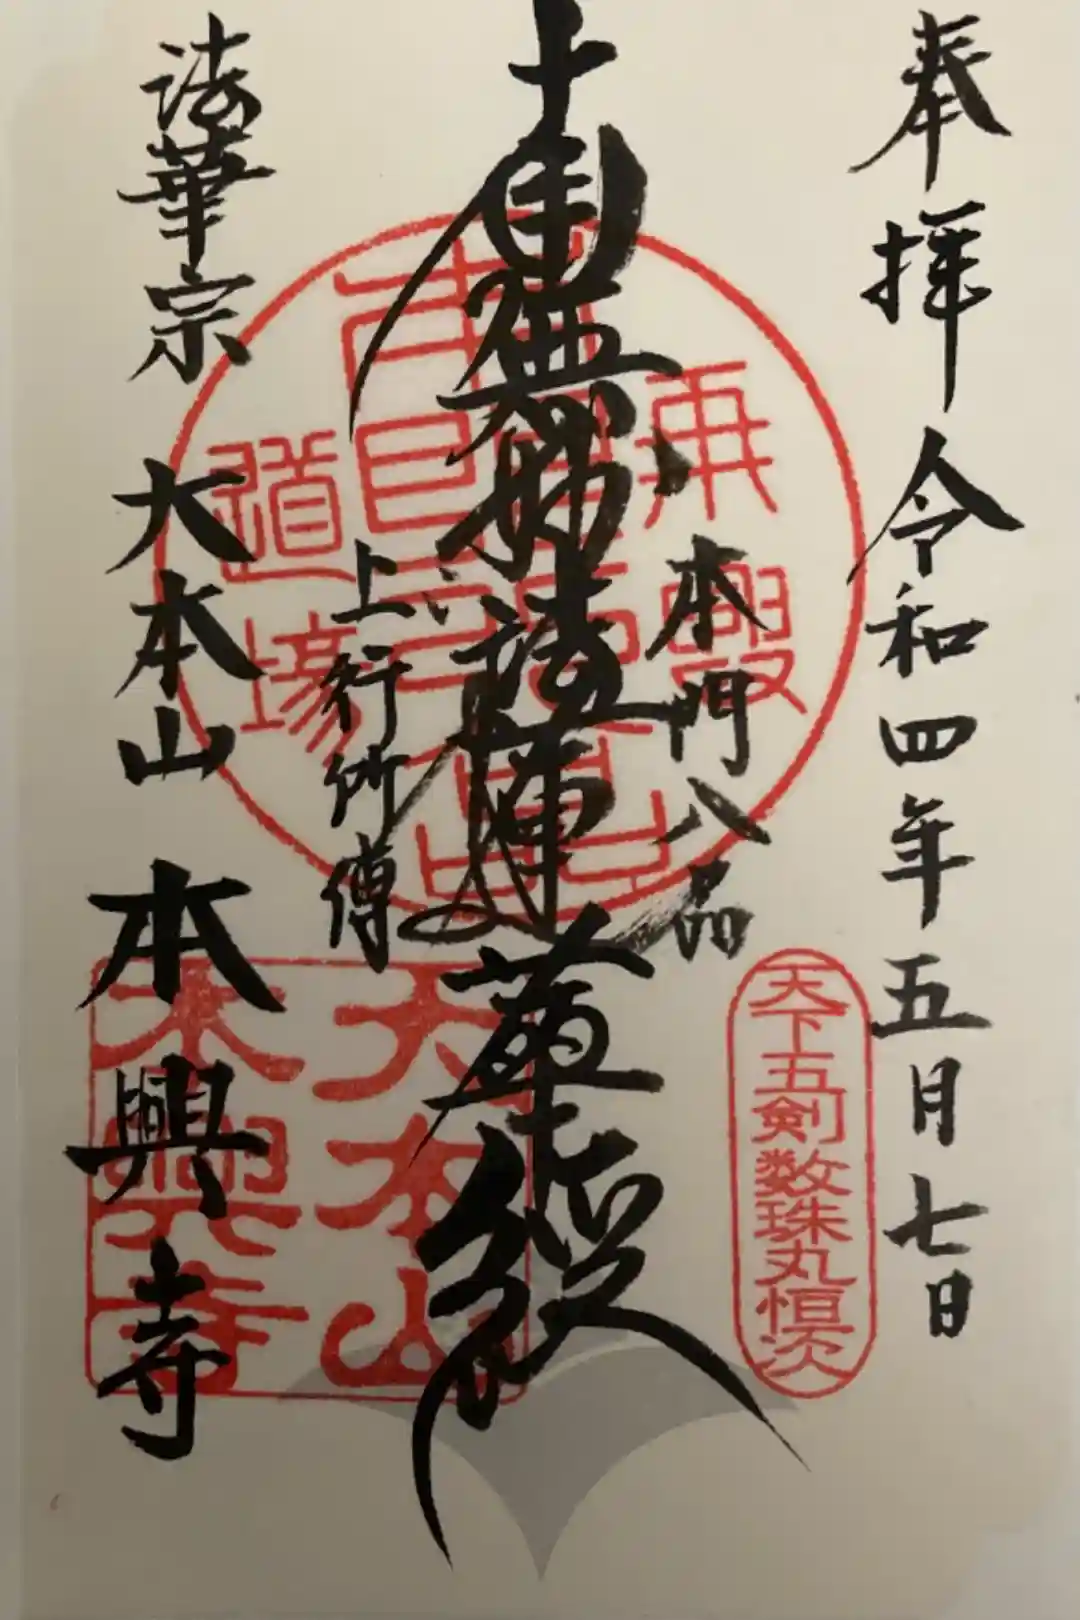 奉拝 令和四年五月七日
天下五剣数珠丸恒次
本門八品
南無妙法蓮華経
上行所傳
大本山
本興寺
法華宗 大本山 本興寺
道場